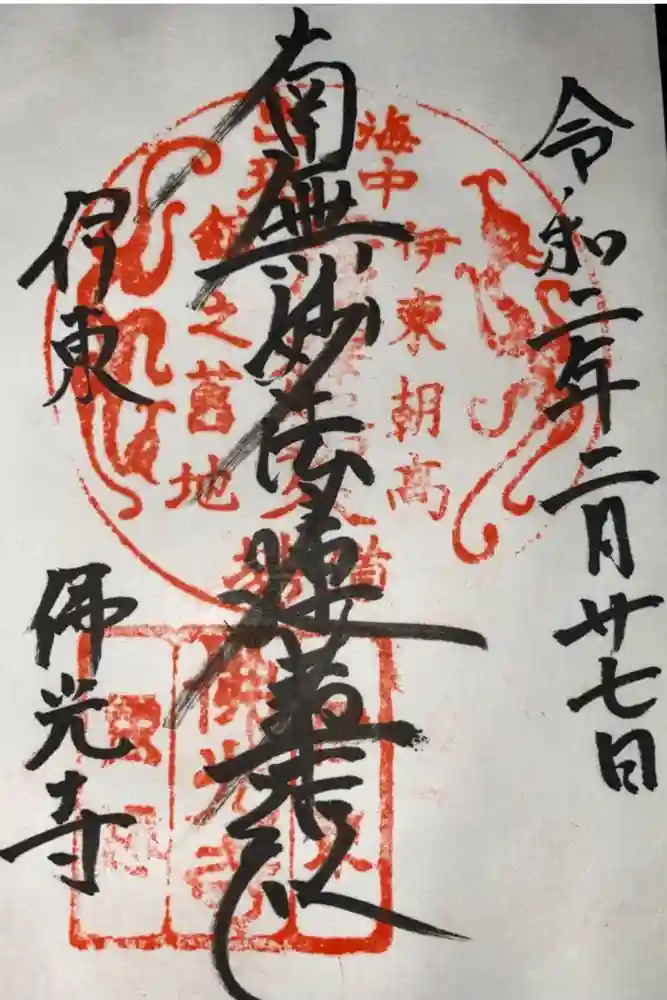 令和二年二月廿七日
南無妙法蓮華経
伊東
佛光寺
海中
伊東朝高
館之舊地
佛光寺